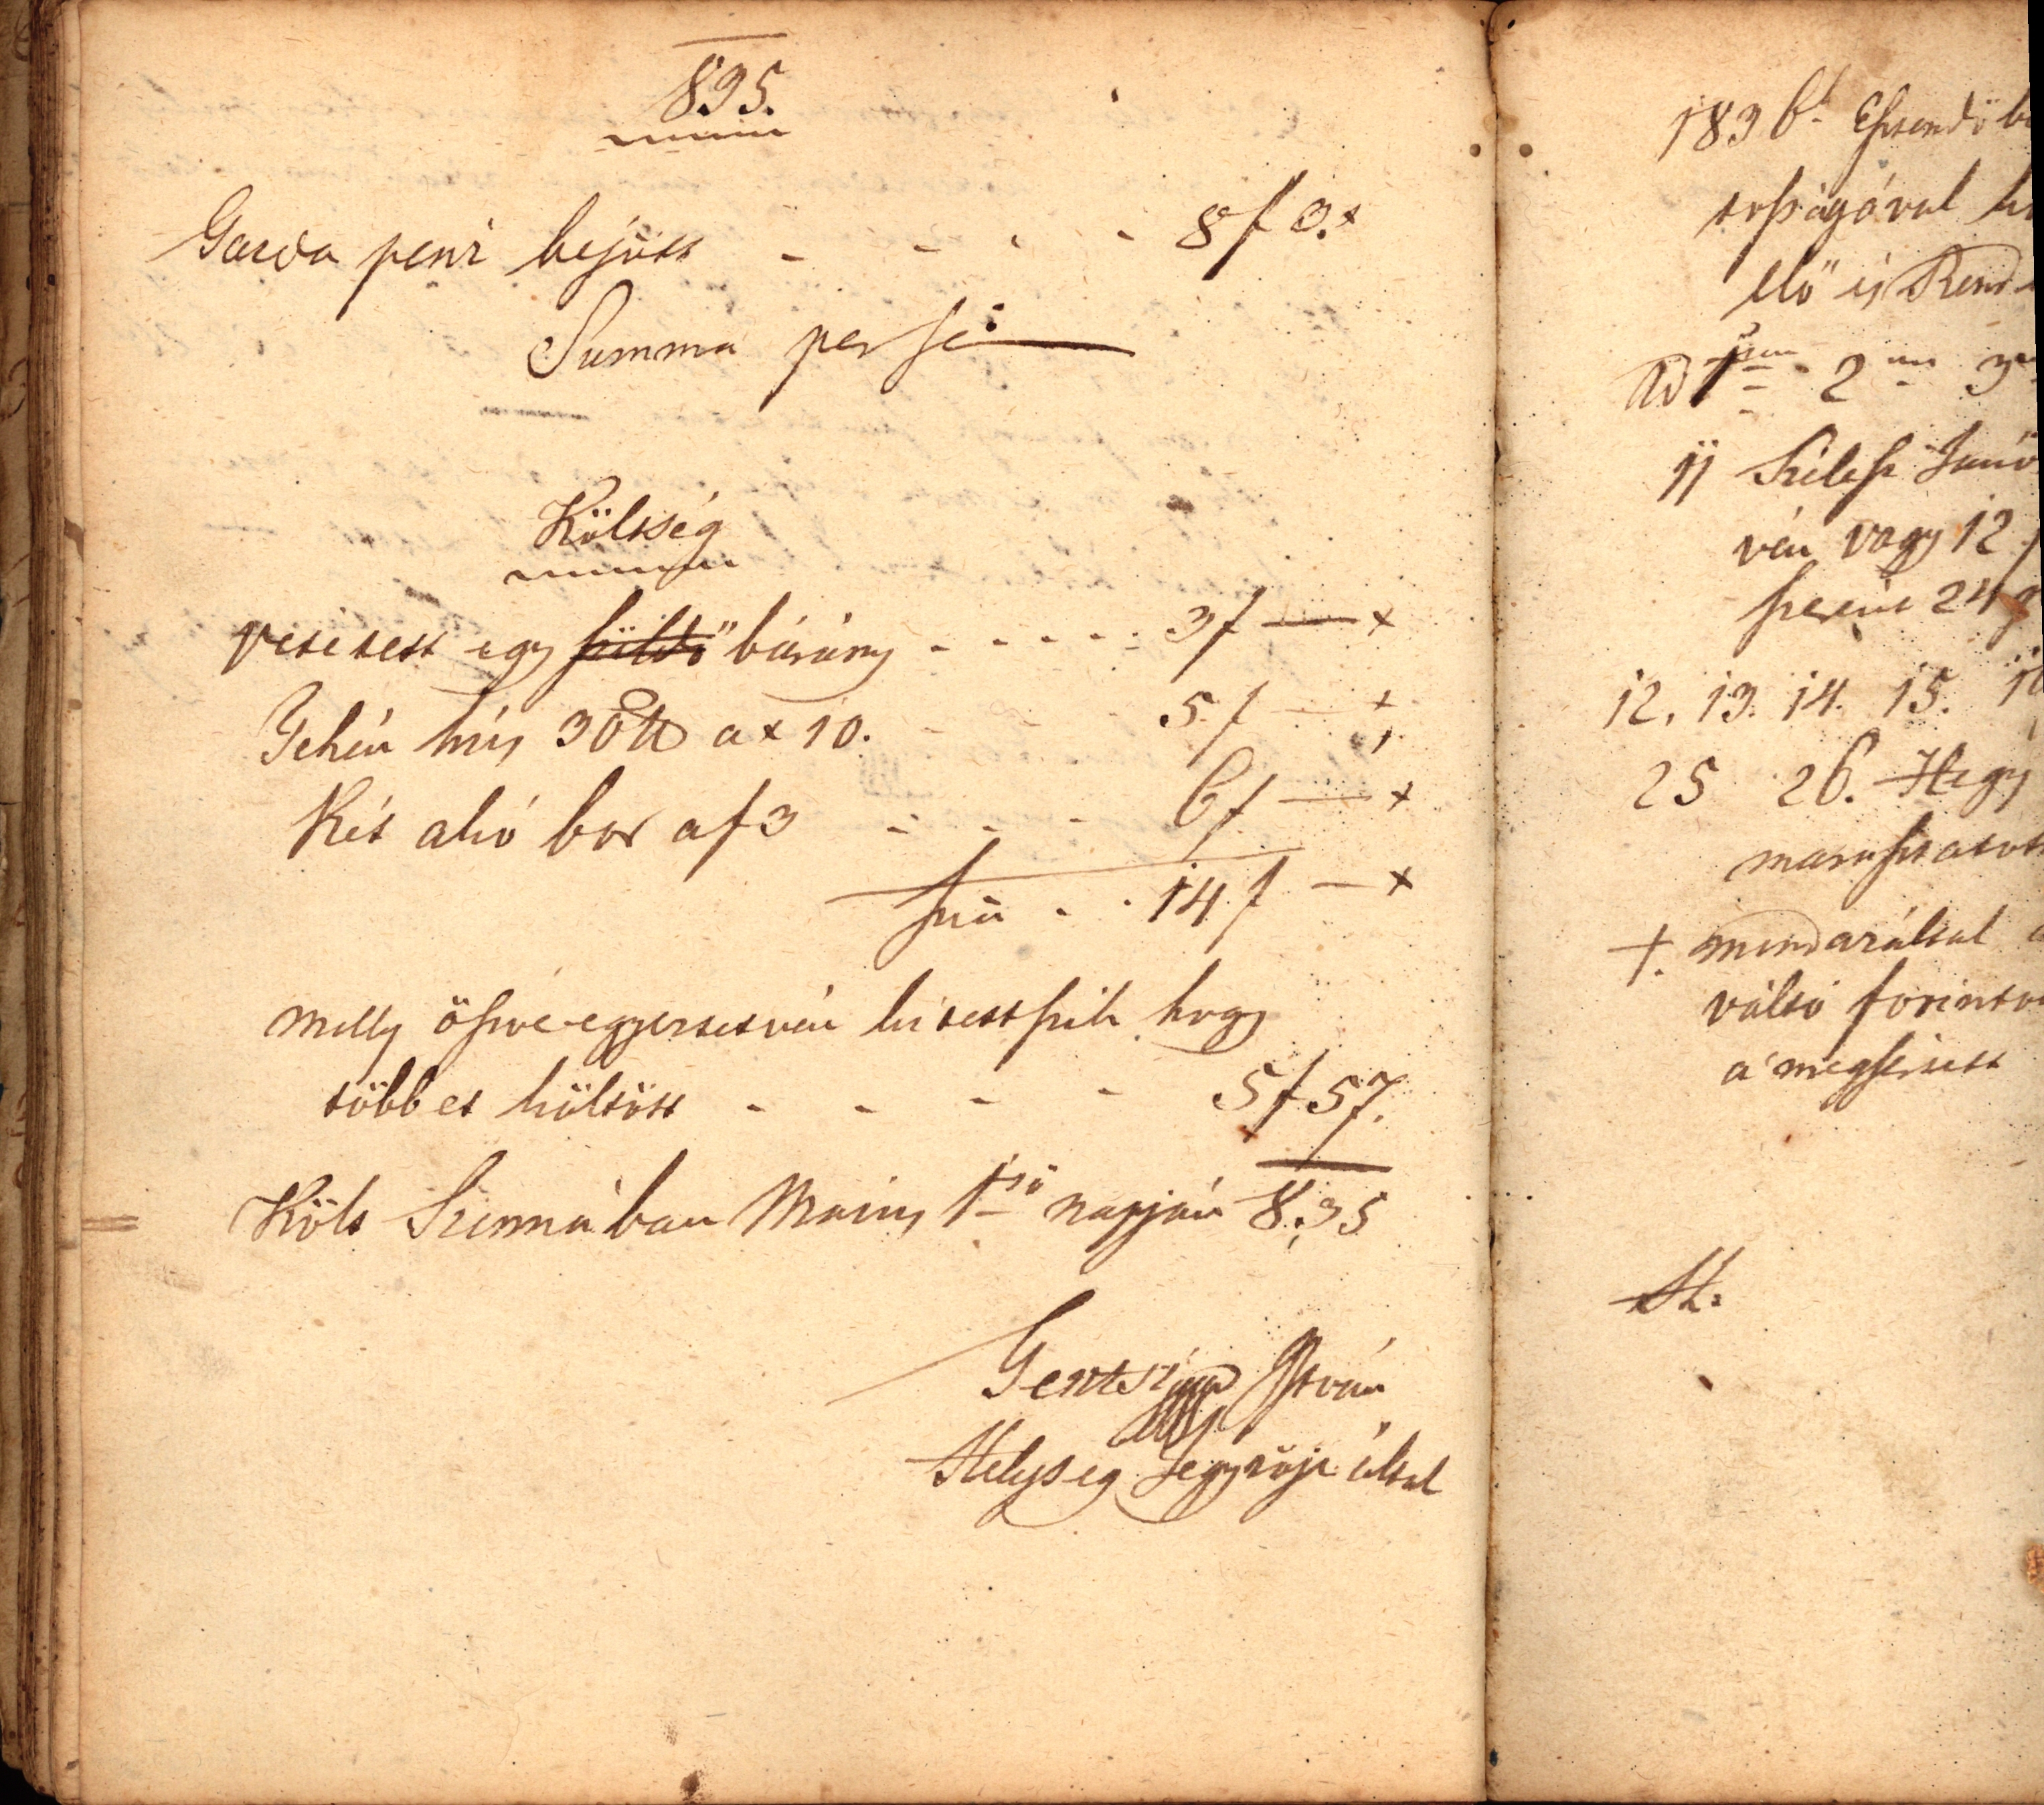 835.
Garda penz bejött - - - - 8 f 3. x
Summa per se
Költség
vétetett egy süldő bárány - - - - - 3 f — x
Tehén hús 30 ℔ a x 10. - - - 5 f — x
Két akó bor a f 3 - - - 6 f — x
Sũa - - 14 f — x
melly öszve egyeztetvén kitettszik hogy
többet költött - - - - 5 f 57.
Költ Szinnában Május 1ső napján 835
István
Helység Jegyzője által
1836k Esztendőbe
előis Rend
Ad 1mum 2um 3
11 Szilesz
vén vagy 12
szerint 24
12. 13. 14. 15.
25 26. Hegy
marasztatott
+. mindazáltal
váltó forinto
a megsértett